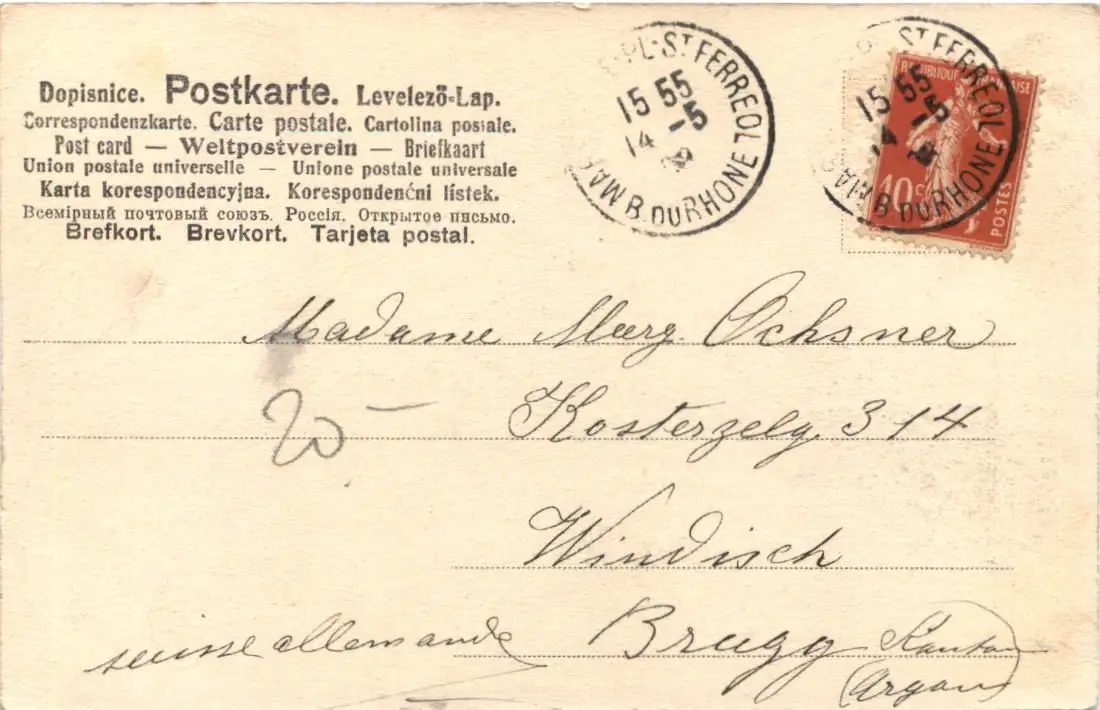 Dopisnice. Postkarte. Levelező-Lap.
Correspondenzkarte. Carte postale. Cartolina postale.
Post card — Weltpostverein — Briefkaart
Union postale universelle — Unione postale universale
Karta korespondencyjna. Korespondenčni lístek.
Всемірный почтовый союзъ. Россія. Открытое письмо.
Brefkort. Brevkort. Tarjeta postal.
PL. ST FERREOL
15 55
14 -5
MAR B. DU RHONE
RÉPUBLIQUE FRANÇAISE
PL. ST FERREOL
15 55
14 -5
10 c
POSTES
MAR B. DU RHONE
Madame Marg. Ochsner
20 —
Kosterzelg 314
Windisch
suisse allemande Brugg Kanton
(Argau)